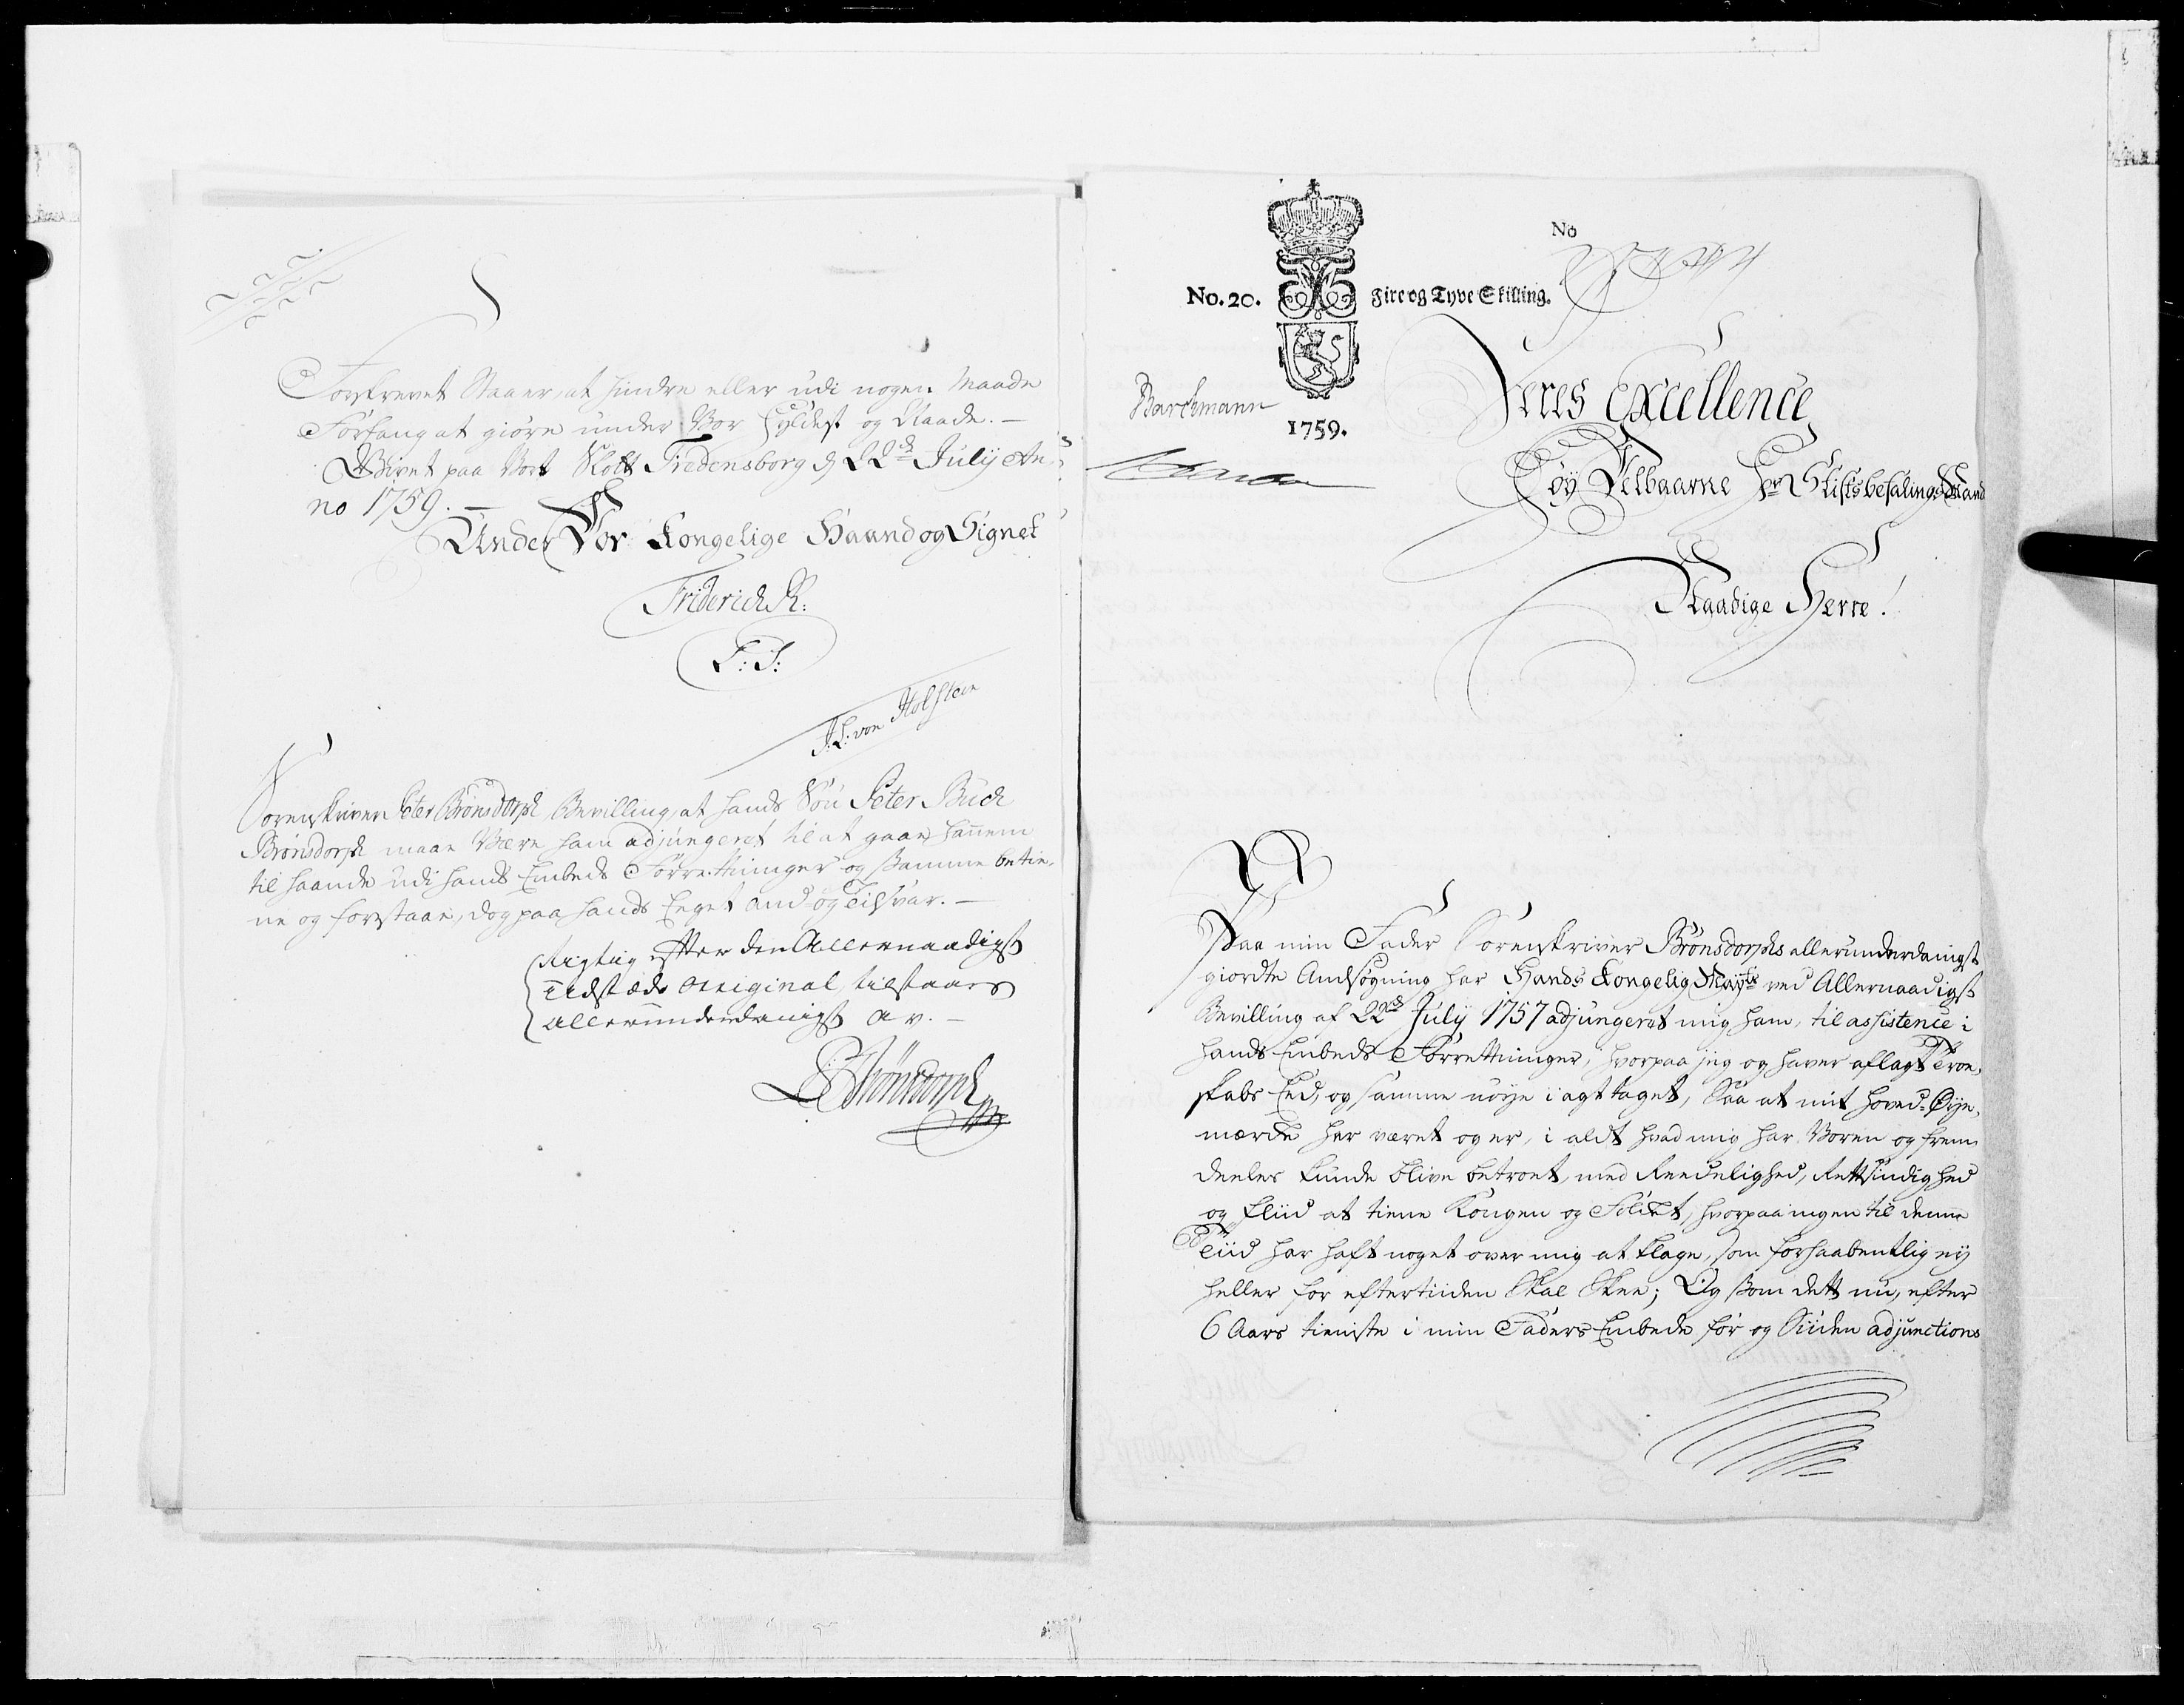 Forskrevet Staaer, at hindre eller udi nogen Maade
Forfang at giøre under Vor Hyldest og Naade. —
Givet paa Vort Slott Fredensborg d 22de July An-
no 1759. —
Under Vor Kongelige Haand og Signet
Friderich R:
L: S:
J. L: von Holstein
Sorenskriver Peter Brönsdorph Bevilling, at hands Søn Peter Buch
Brönsdorph maae Være ham adjungeret til at gaae hannem
til haande udi hands Embeds Forrettninger og samme betie-
ne og forestaae, dog paa hands Eget And- og Tilsvar. —
Rigtig efter den Allernaadigst
Udstædte Original, tilstaaes
allerunderdanigst av. —
Brönsdorph
No
No. 20.
Fire og Tyve Skilling.
1759.
Barchmann
Deres Excellence
Høy Velbaarne Hr Stiftsbefalings Mand
Naadige Herre!
Paa min Fader Sorenskriver Brönsdorphs allerunderdanigst
giordte Ansøgning har Hands Kongelig Mayts ved Allernaadigst
Bevilling af 22de July 1757 adjungeret mig ham, til assistence i
hands Embeds Forrettninger, hvorpaa jeg og haver aflagt Troe-
skabs Eed, og samme nøye i agt taget, Saa at mit hoved-Øye-
mærke har været og er, i aldt hvad mig har Voren og frem-
deeles kunde blive betroet, med Reedelighed, Rettsindighed
og Fliid at tiene Kongen og Folket, hvorpaa ingen til denne
Tiid har haft noget over mig at klage, som forhaabentlig ey
heller for eftertiiden Skal Skee; Og som dett nu, efter
6 Aars tieniste i min Faders Embede før og Siiden adjunctions